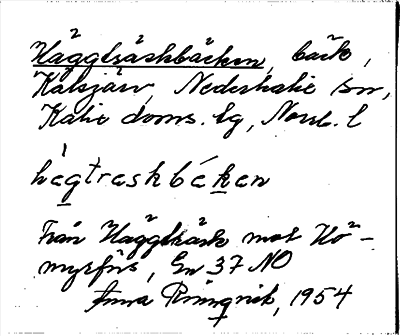 Häggträskbäcken, bäck,
Kälsjärv, Nederkalix sn,
Kalix doms. lg, Norrb. l
hegtreskbéken
Från Häggträsk mot Hö-
myrfors, En 37 NO
Anna Ringqvist, 1954